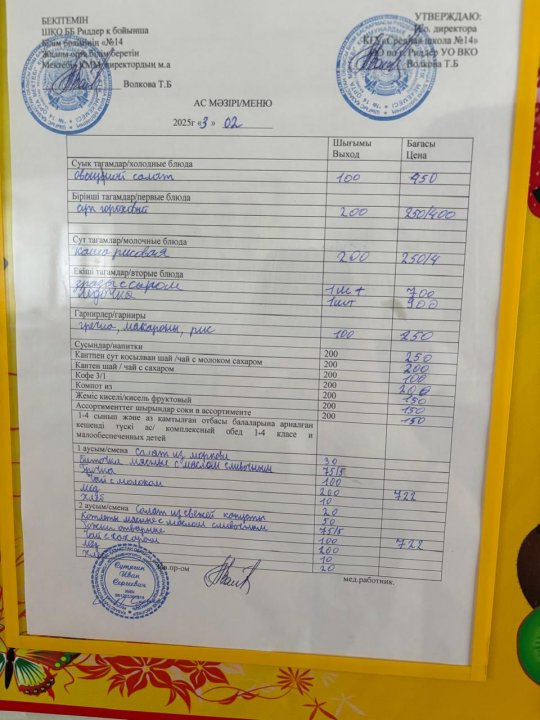 БЕКІТЕМІН
ШКО ББ Риддер к бойынша
білім бөлімінің «№14
Жалпы орта білім беретін
Мектебі» КММ директордың м.а
Волкова Т.Б
УТВЕРЖДАЮ:
И.о. директора
КГУ «Средняя школа №14»
по г. Риддеру УО ВКО
Волкова Т.Б
АС МӘЗІРІ/МЕНЮ
2025г «3» 02
Шығымы Бағасы
Выход Цена
Суық тағамдар/холодные блюда
овощной салат 100 450
Бірінші тағамдар/первые блюда
суп гороховый 200 250/400
Сүт тағамдар/молочные блюда
каша рисовая 200 250/4
Екінші тағамдар/вторые блюда
с сыром 1шт 700
1шт
Гарнирлер/гарниры
гречка, макароны, рис 100 250
Сусындар/напитки
Кантпен сүт қосылған шай /чай с молоком сахаром 200 250
Кантен шай / чай с сахаром 200 200
Кофе 3/1 200 100
Компот из 200 200
Жеміс киселі/кисель фруктовый 200 150
Ассортименттег шырындар соки в ассортименте 200 150
1-4 сынып және аз қамтылған отбасы балаларына арналған 150
кешенді түскі ас/ комплексный обед 1-4 класс и
малообеспеченных детей
1 ауысым/смена Салат из моркови 30
Биточки мясные с маслом сливочным 75/5
Гречка 100
Чай с молоком 200 722
мёд 10
хлеб 20
2 ауысым/смена Салат из свежей капусты 50
Котлеты мясные с маслом сливочным 75/5
отварные 100 722
Чай с сахаром 200
мёд 10
хлеб 20
Зав.пр-ом
мед.работник.
Сергеевич